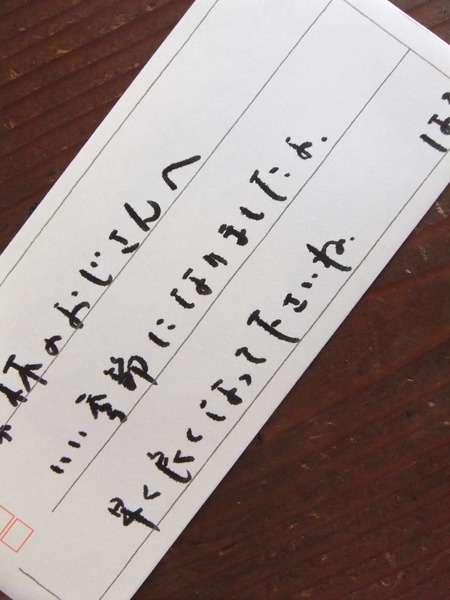 林のおじさんへ
いい季節になりましたよ。
早く良くなって下さいね。